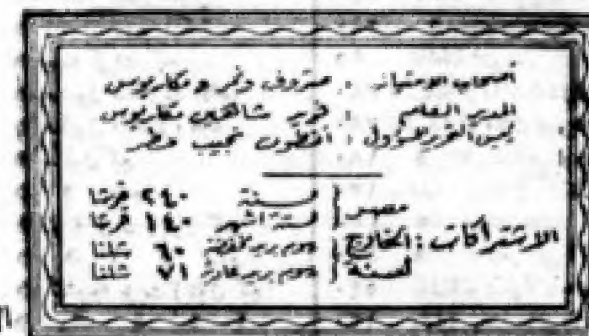 أصحاب الامتياز : صروف ونمر ومكاريوس
المدير العام : فوزى شاهين مكاريوس
رئيس التحرير المسؤول : أنطون نجيب مطر
الاشتراكات :
مصر
لسنة ٢٤٠ قرشا
لستة اشهر ١٤٠ قرشا
الخارج لسنة
٦٠ شلنا
٧١ شلنا